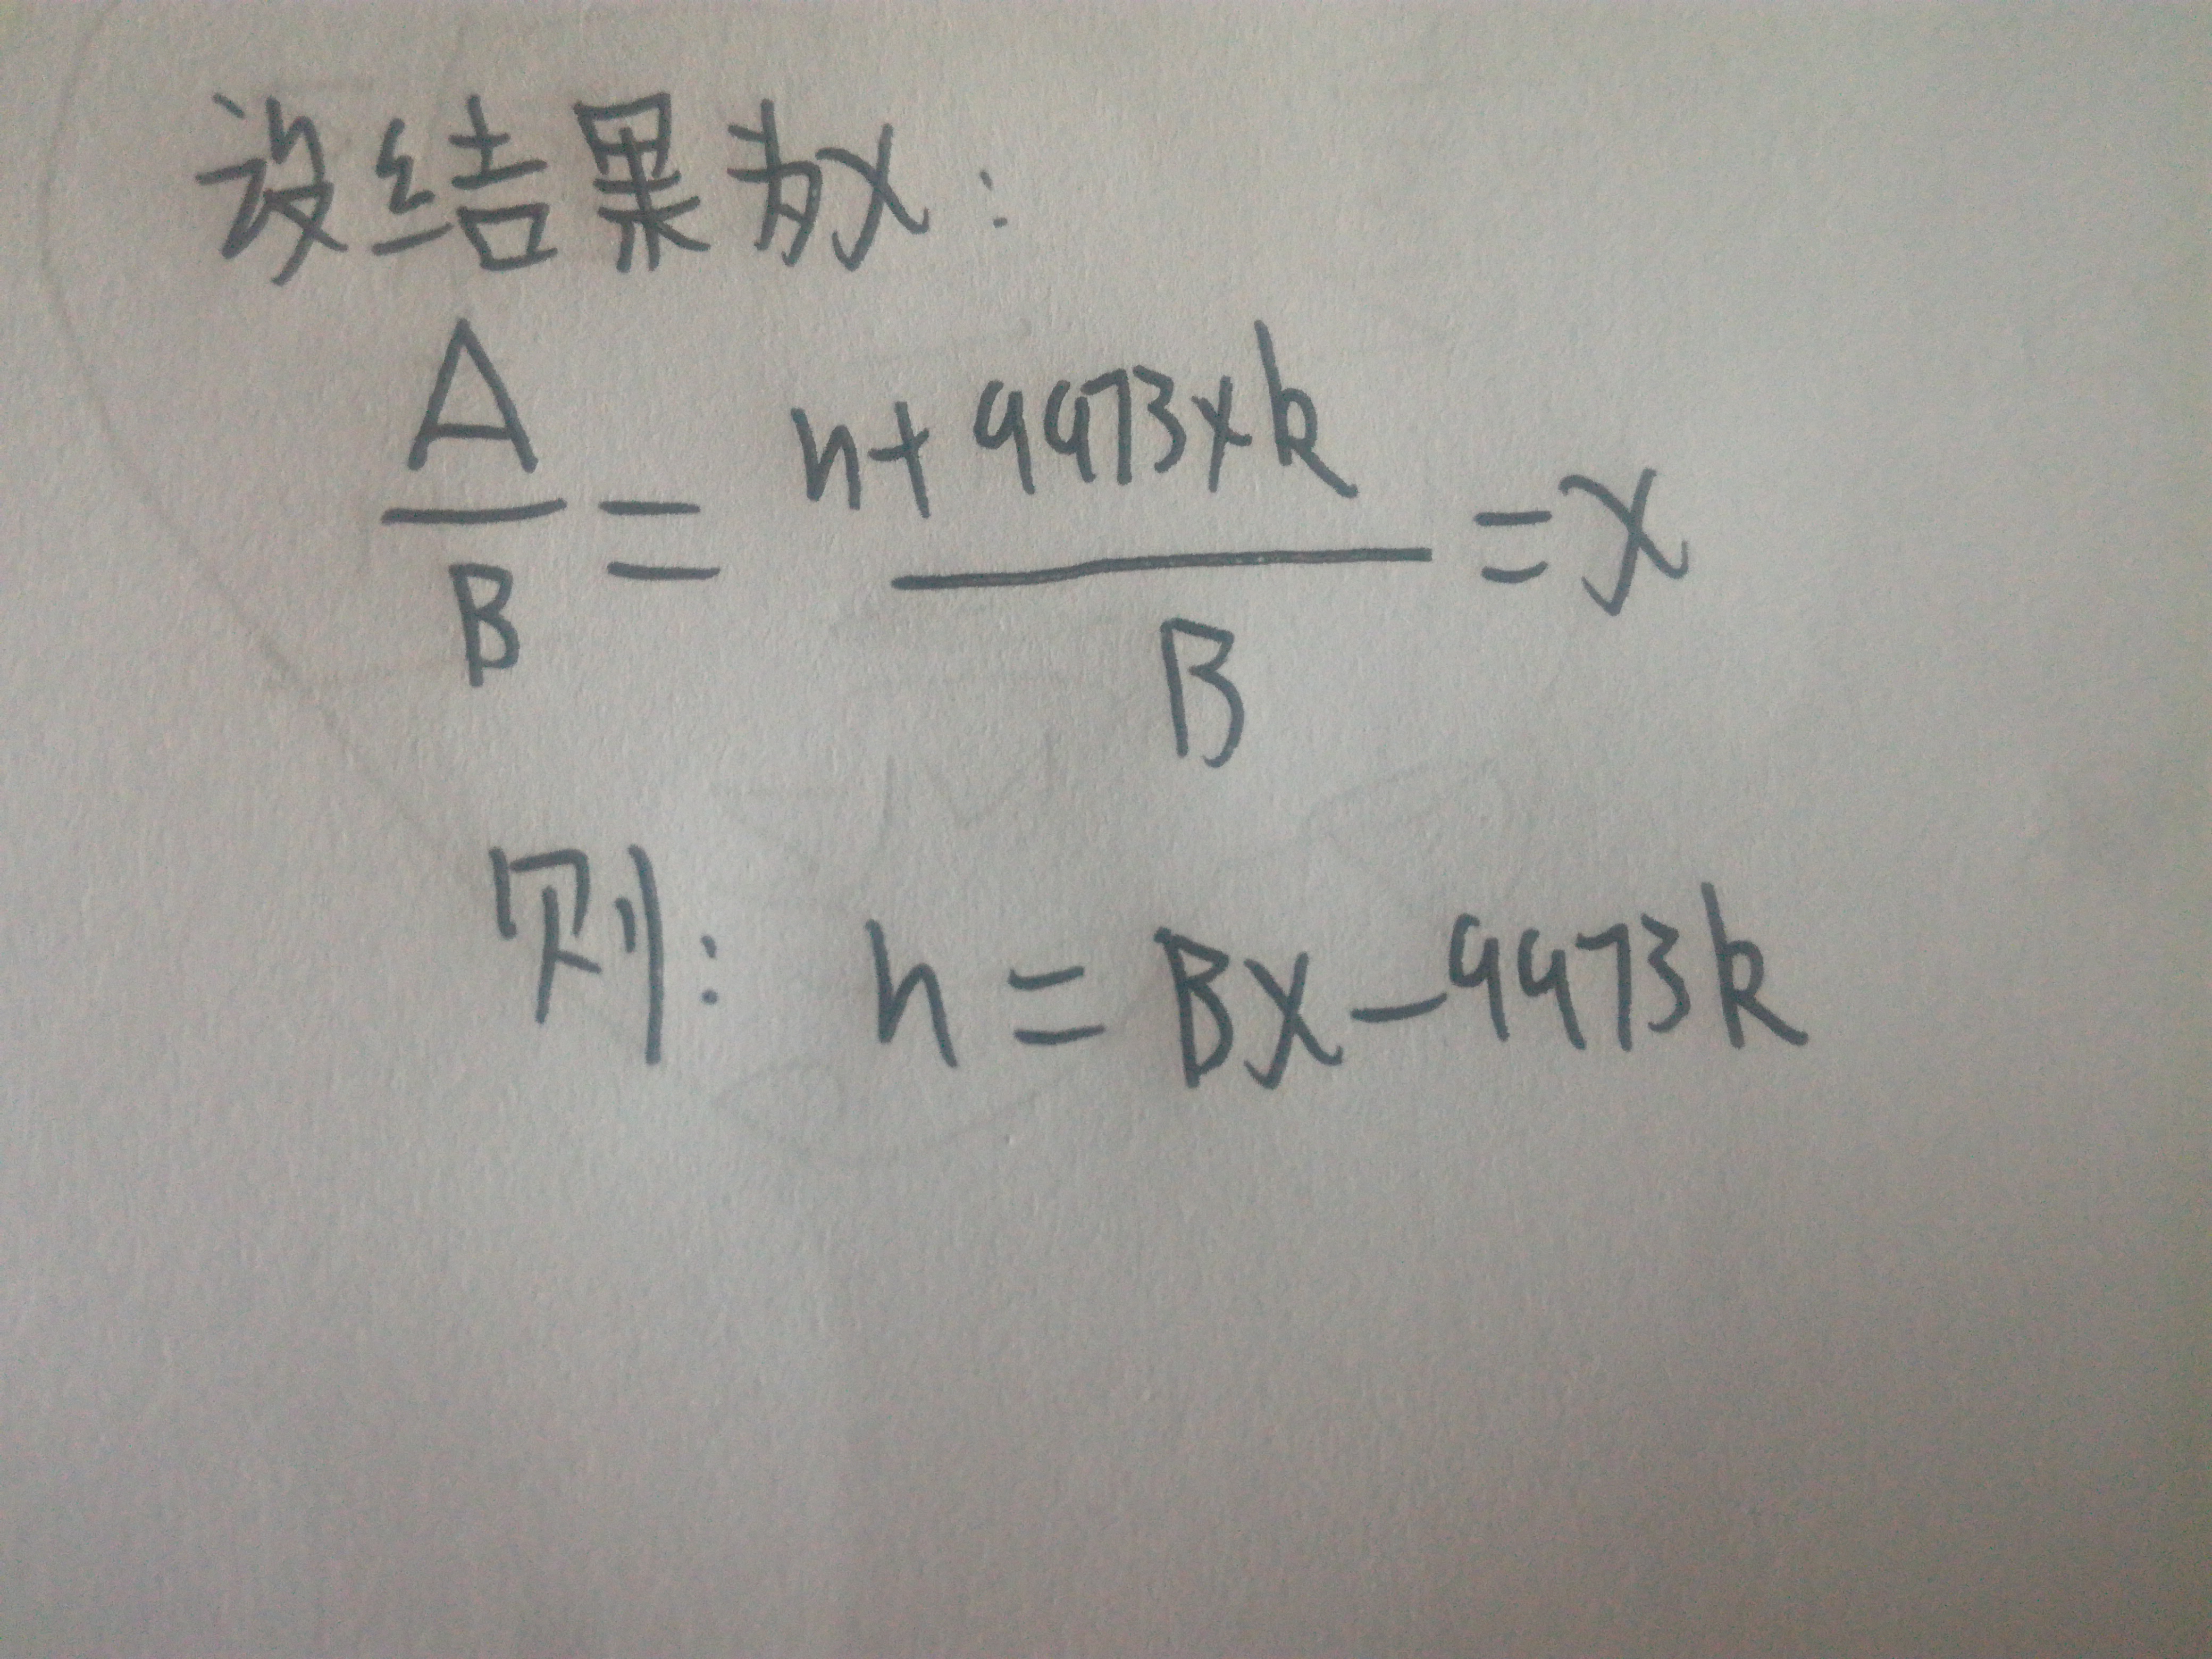 设结果为x:
A/B = (n+9973×k)/B = x
则: n = Bx-9973k